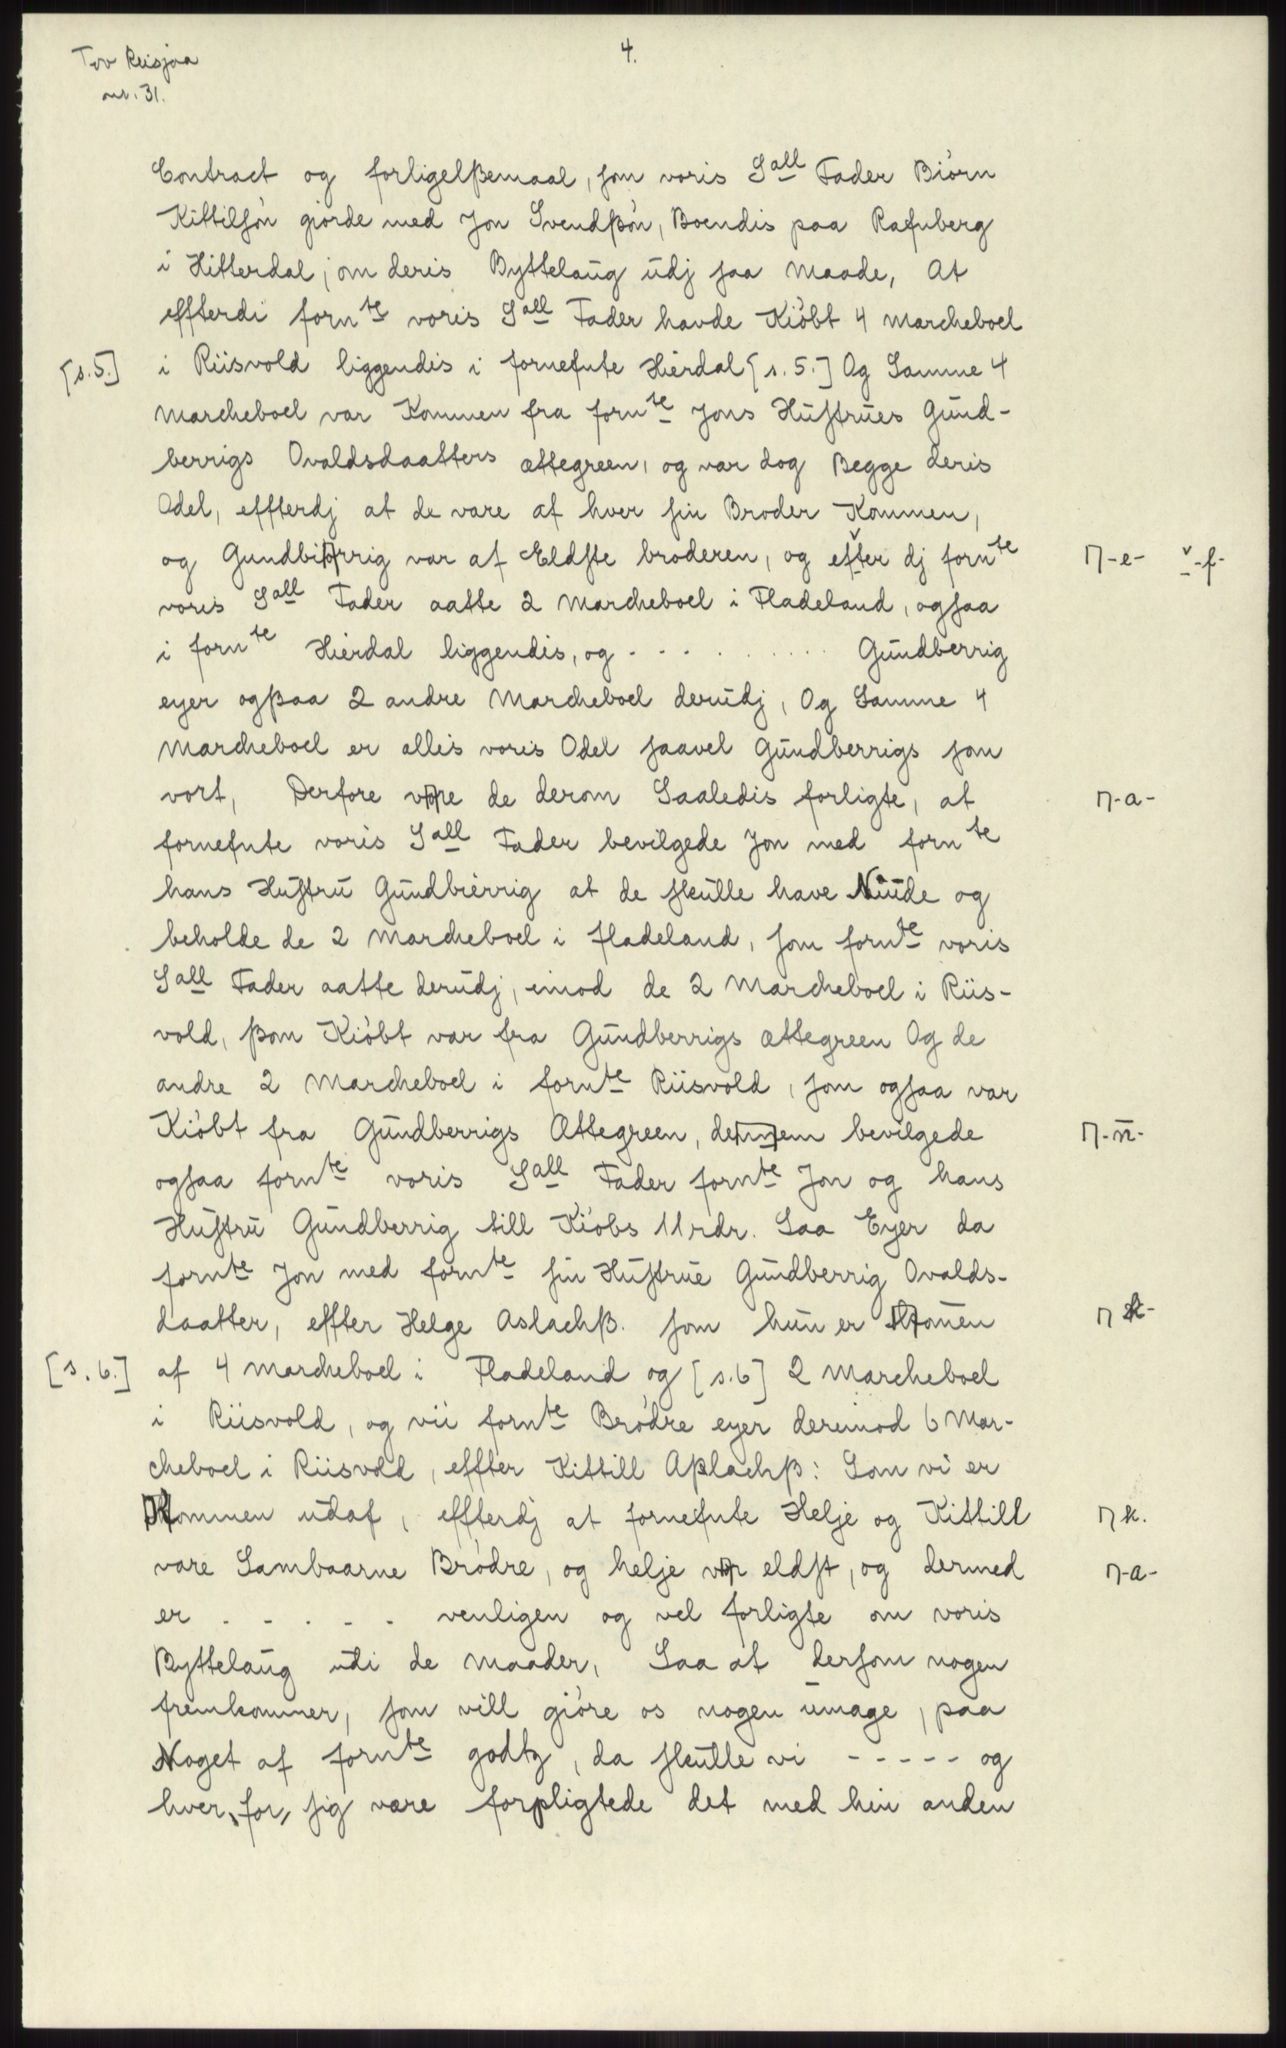 Tov Reisjaa
nr. 31.
4.
Contract og forligelßemaal, som voris Sall Fader Biórn
Kittilsón giorde med Jon Svendßón, Boendis paa Rafnberg
i Hitterdal, om deris Byttelaug udj saa Maade, At
effterdi fornte voris Sall Fader havde Kióbt 4 marcheboel
[s.5.] i Riisvold liggendis i fornefnte Hierdal [s. 5.] Og Samme 4
marcheboel var Kommen fra fornte Jons Hustrues Gund-
berrigs Ovaldsdaatters ættegreen, og var dog Begge deris
Odel, effterdj at de vare af hver sin Broder Kommen,
og Gundbierrig var af Eldste broderen, og efter dj fornte ⊓-e- v-f-
voris Sall Fader aatte 2 Marcheboel i Fladeland, ogsaa
i fornte Hierdal liggendis, og - - - - - - - - - Gundberrig
eyer ogßaa 2 andre Marcheboel derudj, Og Samme 4
Marcheboel er allis voris Odel saavel Gundberrigs som
vort, Derfore vare de derom Saaledis forligte, at ⊓-a-
fornefnte voris Sall Fader bevilgede Jon med fornte
hans Hustru Gundbierrig at de skulle have Niude og
beholde de 2 Marcheboel i fladeland, som fornte voris
Sall Fader aatte derudj, imod de 2 Marcheboel i Riis-
vold, ßom Kióbt var fra Gundberrigs ættegreen Og de
andre 2 Marcheboel i fornte Riisvold, som ogsaa var
Kióbt fra Gundberrigs Ættegreen, dennem bevilgede ⊓-n-
ogsaa fornte voris Sall Fader fornte Jon og hans
Hustru Gundberrig till Kiobs 11 rdr. Saa Eyer da
fornte Jon med fornte sin Hustrue Gundberrig Ovalds-
daatter, effter Helge Aslachß. som hun er Komen ⊓ k-
[s. 6.] af 4 marcheboel i Fladeland og [s.6] 2 Marcheboel
i Riisvold, og vii fornte Bródre eyer deremod 6 Mar-
cheboel i Riisvold, effter Kittill Aßlachß: Som vi er
Kommen udaf, effterdj at fornefnte Helje og Kittill ⊓ k.
vare Sambaarne Bródre, og helje var eldst, og dermed ⊓-a-
er - - - - - venligen og vel forligte om voris
Byttelaug udi de maader, Saa at dersom nogen
fremkommer, som vill gióre os nogen umage, paa
Noget af fornte godtz, da skulle vi - - - - - og
hver for sig være forpligtede det med hin anden